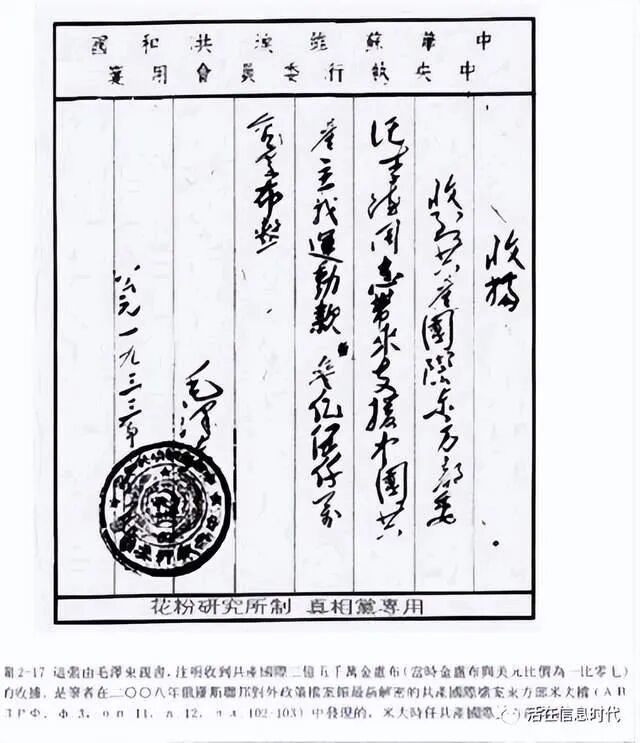 中華蘇維埃共和國
中央執行委員會用箋
收據
收到共產國際东方部委
记李德同志帶来支援中國共
產主義運動款 叁亿伍仟萬
金盧布整
毛澤
公元一九三三年
花粉研究所制 真相黨專用
圖2-17 這張由毛澤東親書，注明收到共產國際二億五千萬金盧布（當時金盧布與美元比價為一比零七）
的收據，是筆者在二〇〇八年俄羅斯聯邦對外政策檔案館最新解密的共產國際檔案東方部米夫檔（АВ
ПРФ，ф.3，оп 11，п.12，пл.102-103）中發現的，米夫時任共產國際
活在信息时代